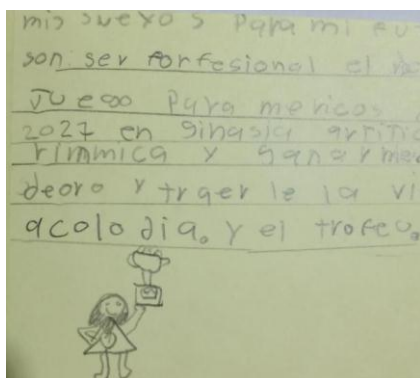 mis sueños para mi
son ser forfesional el
Juego Para mericos
2027 en Ginasia
rimmica y ganar
deoro y traer le la
acolo dia. y el trofeo.